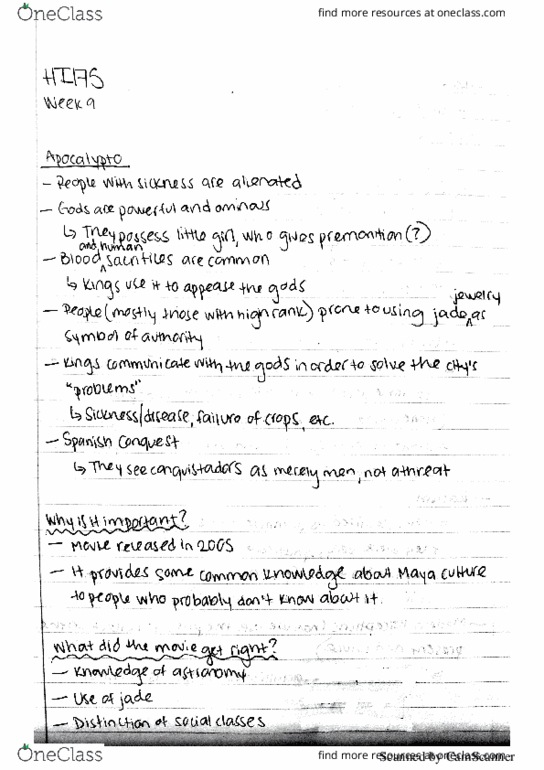 OneClass find more resources at oneclass.com
HIAS
Week 9
Apocalypto
- People with sickness are alienated
- Gods are powerful and ominous
↳ They possess little girl, who gives premonition (?)
and human
- Blood ^ sacrifices are common
↳ Kings use it to appease the gods
jewelry
- People (mostly those with high rank) prone to using jade ^ as
symbol of authority
- Kings communicate with the gods in order to solve the city's
"problems"
↳ Sickness/disease, failure of crops, etc.
- Spanish Conquest
↳ They see conquistadors as merely men, not a threat
Why is it important?
- Movie released in 2005
- It provides some common knowledge about Maya culture
to people who probably don't know about it.
What did the movie get right?
- Knowledge of astronomy
- Use of jade
- Distinction of social classes
OneClass find more resources at oneclass.com
Scanned by CamScanner